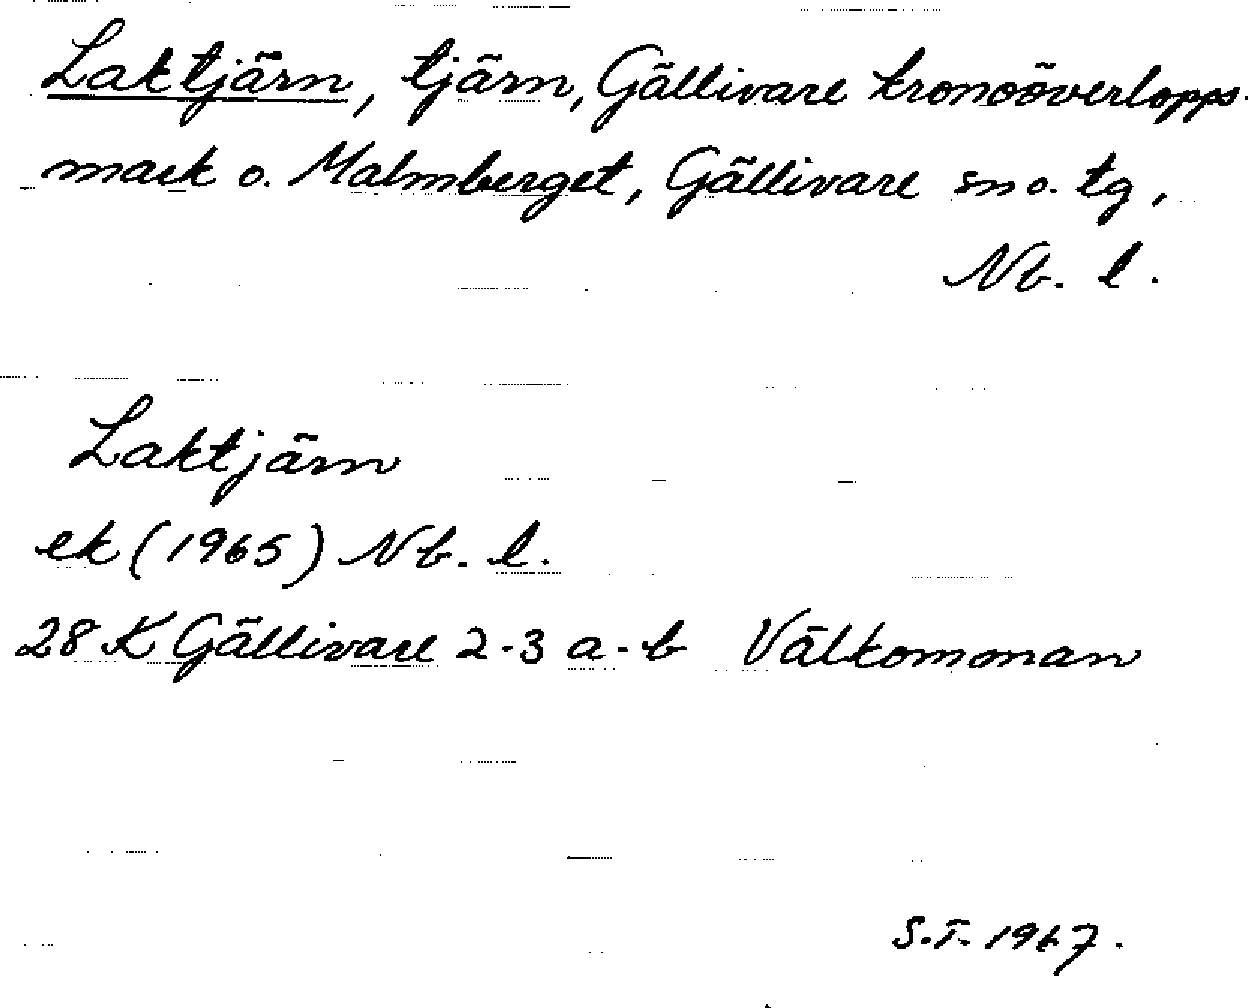 Laktjärn, tjärn, Gällivare kronoöverlopps-
mark o. Malmberget, Gällivare sn o. tg,
Nb. l.
Laktjärn
ek (1965) Nb. l.
28 K Gällivare 2-3 a-b Välkomman
S.T. 1967.